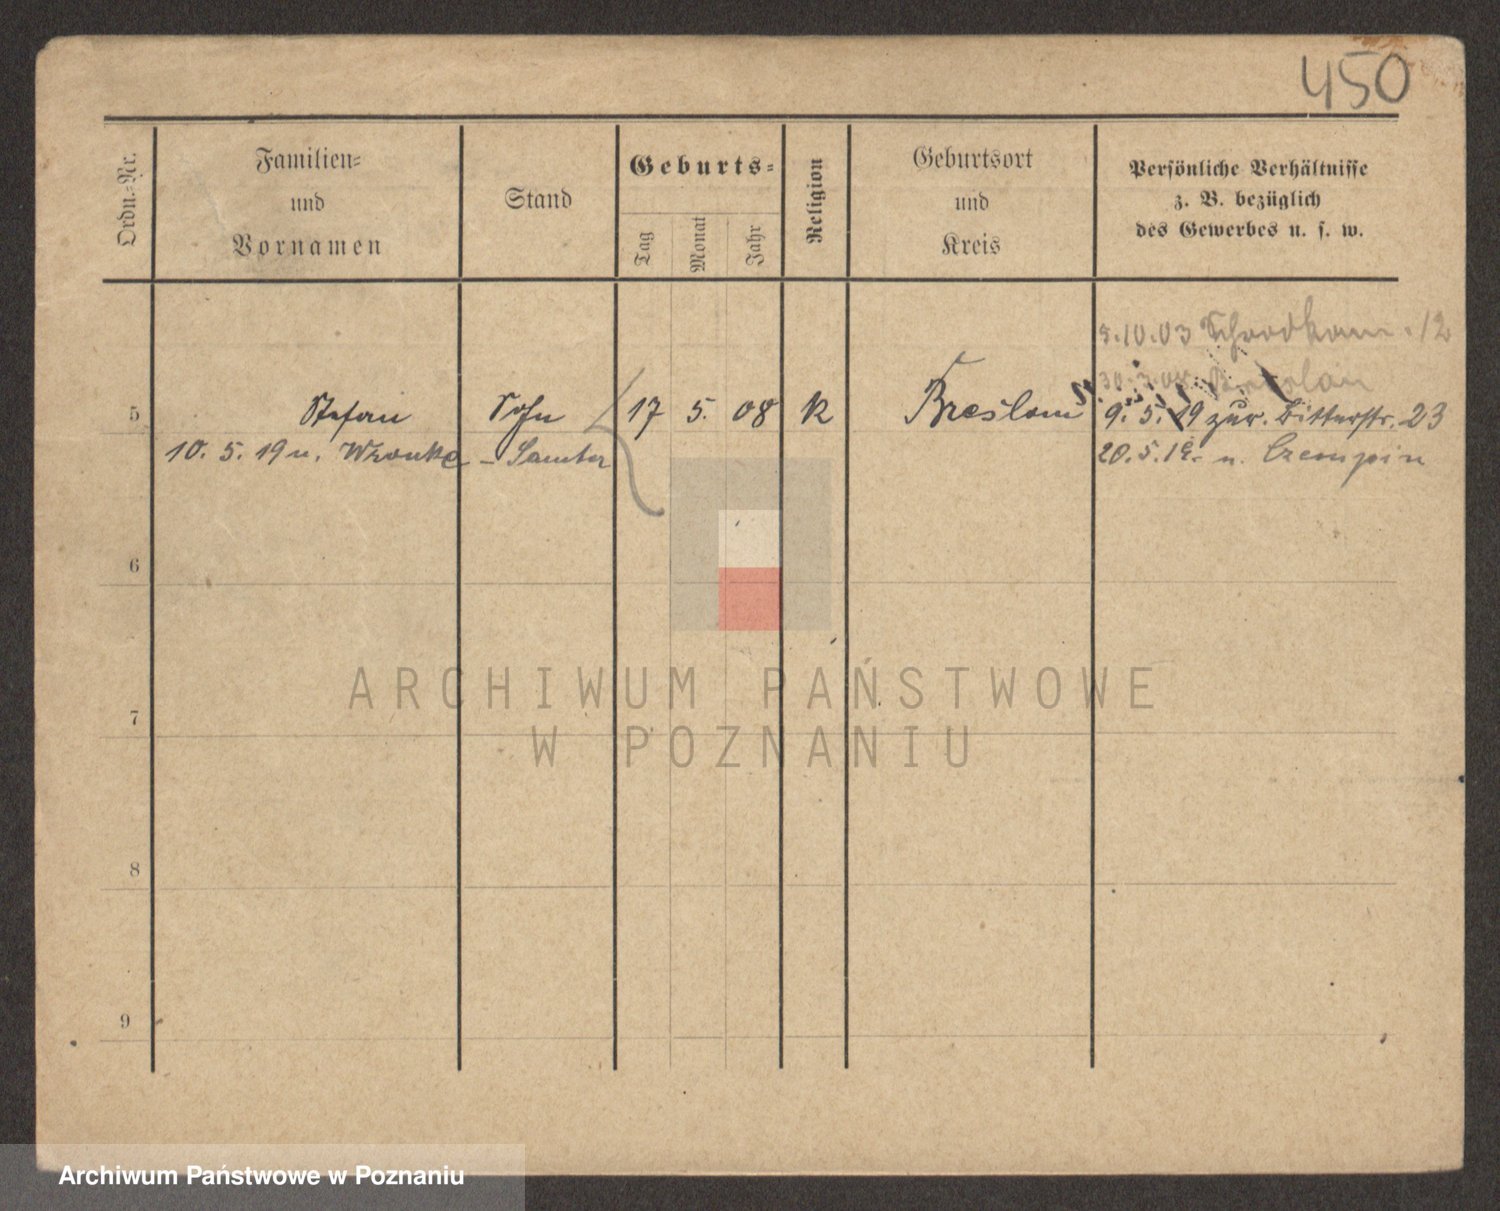 450
Ordn.-Nr.
Familien-
und
Vornamen
Stand
Geburts-
Tag
Monat
Jahr
Religion
Geburtsort
und
Kreis
Persönliche Verhältnisse
z. B. bezüglich
des Gewerbes u. s. w.
5.10.03 12
Breslau
5 Stefan Sohn 17 5. 08 K Breslau 9. 5. 19 zur. Ritterstr. 23
10. 5. 19 n. Wronke - Samter 20. 5. 19. n. Czempin
6
ARCHIWUM PAŃSTWOWE
7
W POZNANIU
8
9
Archiwum Państwowe w Poznaniu